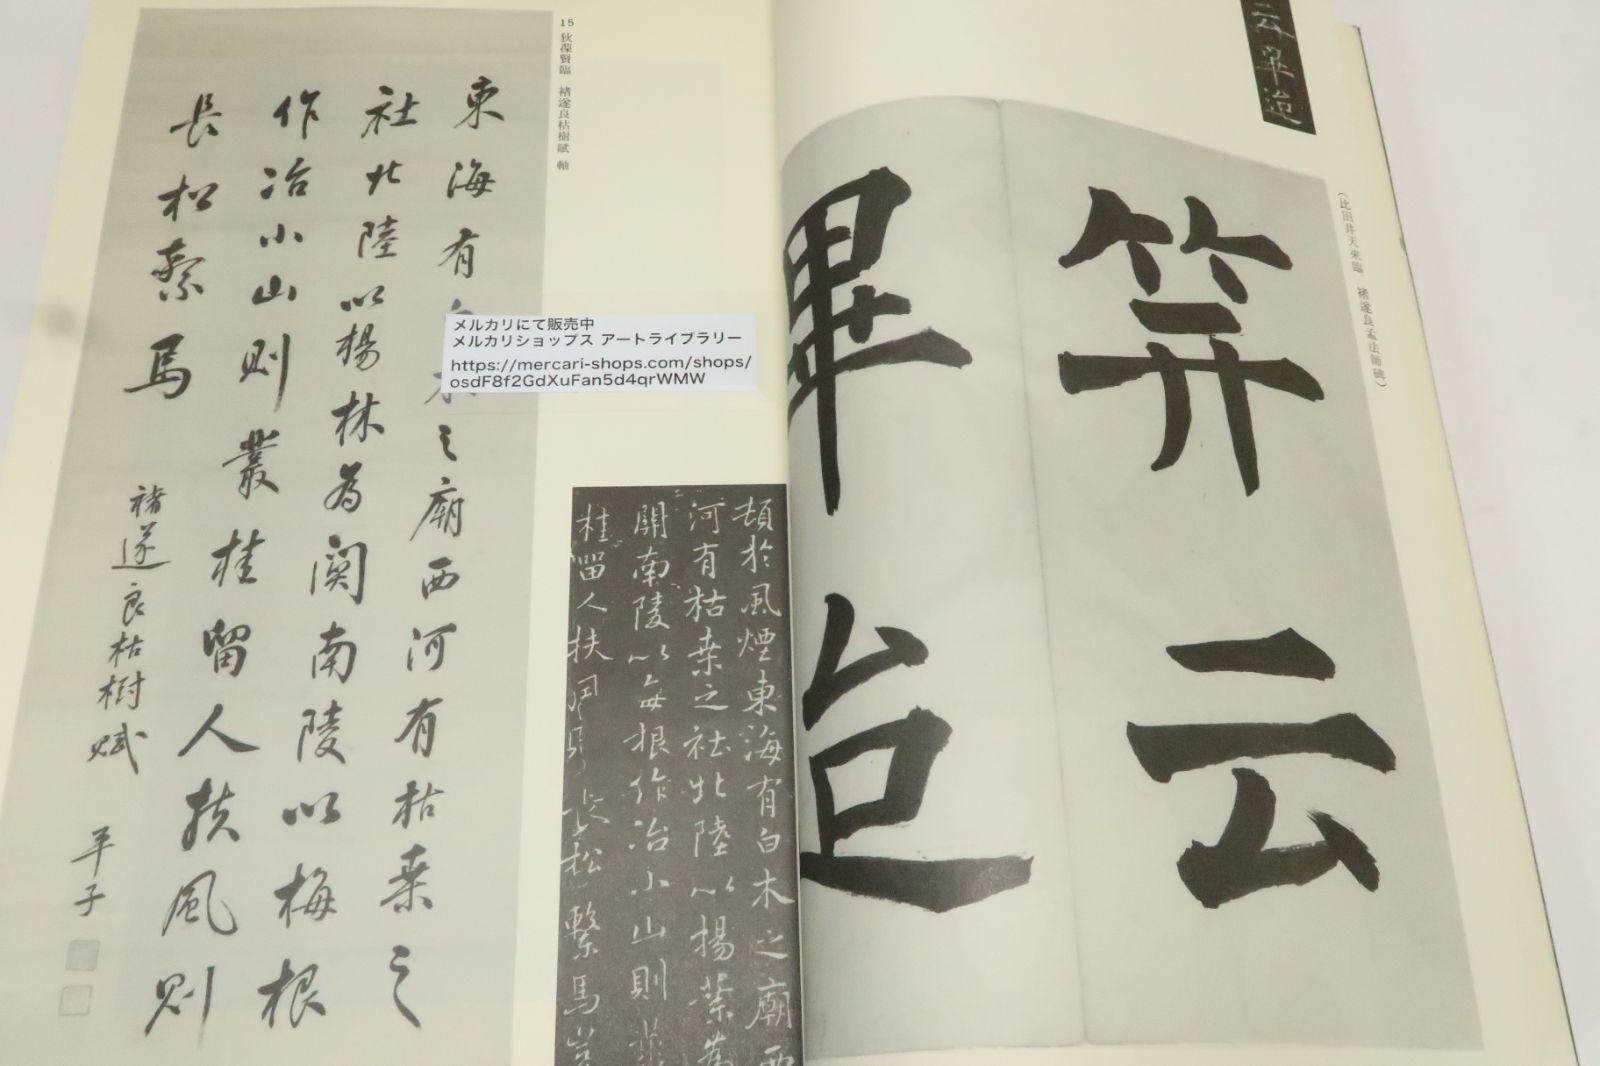 (比田井天來臨 褚遂良孟法師碑)
笄云
畢迨
云畢迨
15 狄葆賢臨 褚遂良枯樹賦 軸
東海有
之廟西河有枯桒之
社北陸以楊林為関南陵以梅根
作冶小山則叢桂留人扶風則
長松繫馬
褚遂良枯樹賦
平子
メルカリにて販売中
メルカリショップス アートライブラリー
https://mercari-shops.com/shops/
osdF8f2GdXuFan5d4qrWMW
頓於風煙東海有白木之廟西
河有枯桒之社北陸以楊葉為
關南陵以每根作冶小山則叢
桂留人扶風則長松繫馬豈